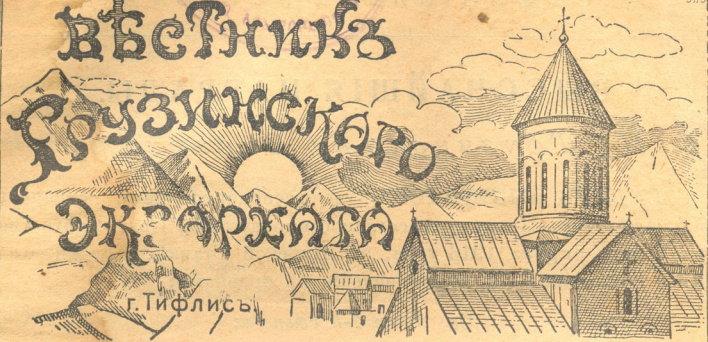 ВѢСТНИКЪ
ГРУЗИНСКАГО
ЭКЗАРХАТА
г. Тифлисъ